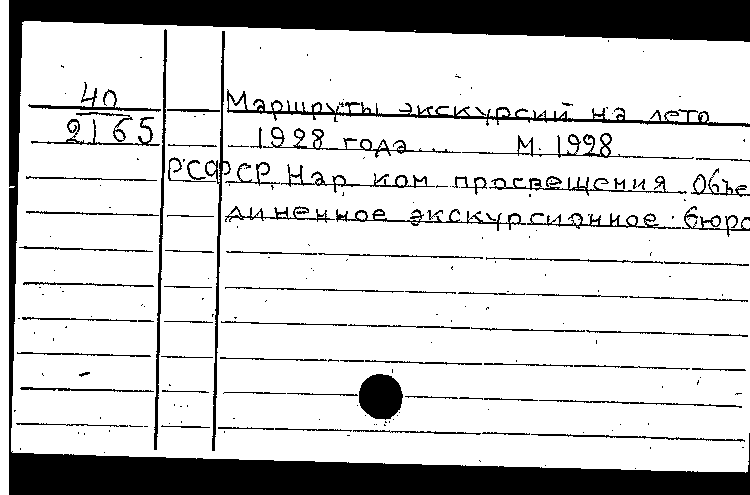 40
2165
Маршруты экскурсий на лето
1928 года... М. 1928
РСФСР. Нар ком просвещения Объе
диненное экскурсионное бюро